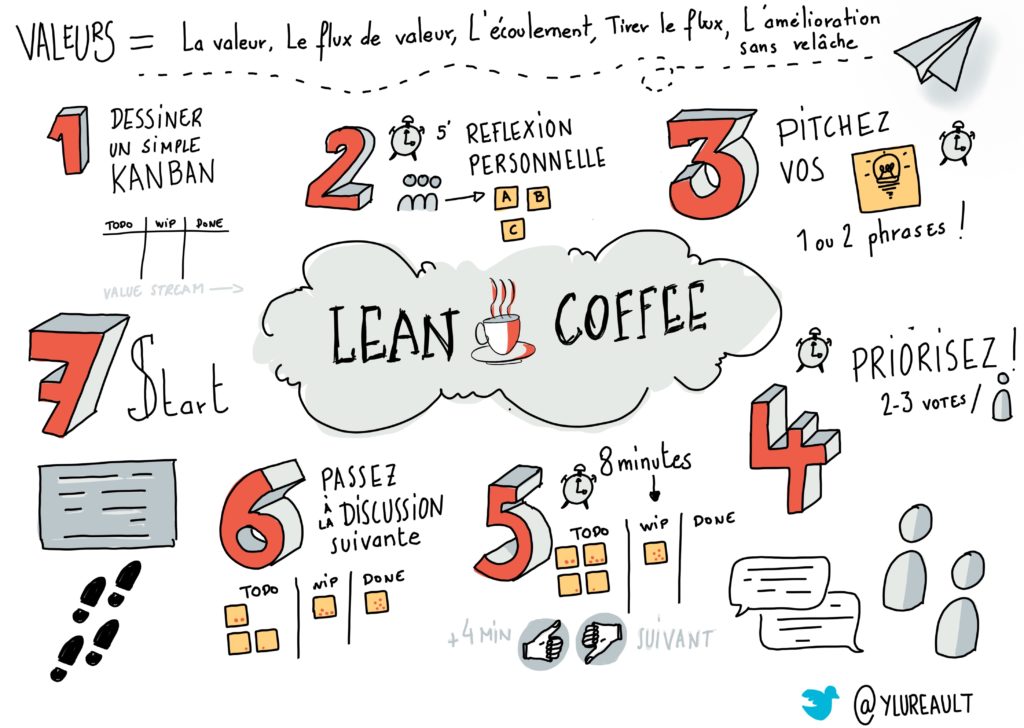 VALEURS = La valeur, Le flux de valeur, L'écoulement, Tirer le flux, L'amélioration
sans relâche
1
DESSINER
UN SIMPLE
KANBAN
TODO WIP DONE
VALUE STREAM
2
5'
REFLEXION
PERSONNELLE
A B
C
3
PITCHEZ
VOS
1 ou 2 phrases !
LEAN COFFEE
4
PRIORISEZ !
2-3 VOTES /
5
8 minutes
TODO WIP DONE
+4 MIN SUIVANT
6
PASSEZ
À
LA DISCUSSION
suivante
TODO WIP DONE
7
Start
@YLUREAULT